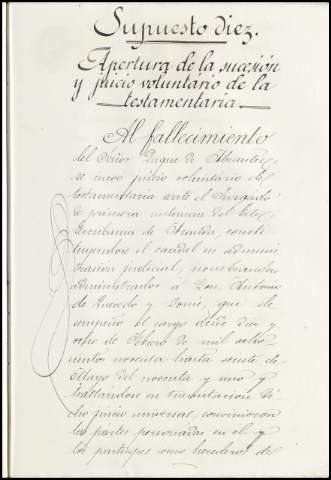 Supuesto diez.
Apertura de la sucesión
y juicio voluntario de la
testamentaria.
Al fallecimiento
del Señor Duque de Abrantes,
se incoó juicio voluntario de
testamentaria ante el Juzgado
de primera instancia del
Escribanía de consti
tuyendose el caudal en adminis
tración judicial, nombrandose
administrador a Don Antonio
de Quesada y que de
sempeñó el cargo desde diez y
ocho de Febrero de mil ocho
cientos noventa hasta siete de
Mayo del noventa y uno y
hallandose en tramitacion di
cho juicio universal, convinieron
las partes personadas en él y
los participes como herederos de